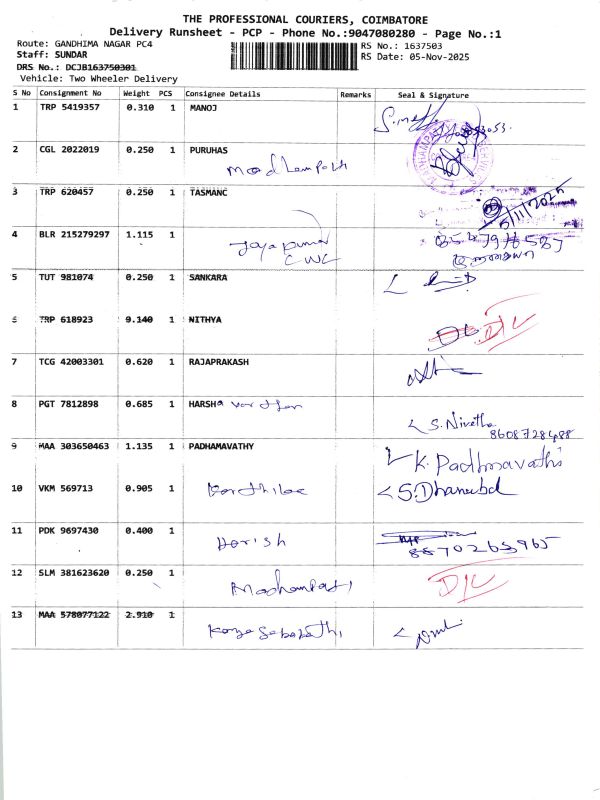 THE PROFESSIONAL COURIERS, COIMBATORE
Delivery Runsheet - PCP - Phone No.:9047080280 - Page No.:1
Route: GANDHIMA NAGAR PC4
RS No.: 1637503
Staff: SUNDAR
RS Date: 05-Nov-2025
DRS No.: DCJB163750301
Vehicle: Two Wheeler Delivery
S No Consignment No Weight PCS Consignee Details Remarks Seal & Signature
1 TRP 5419357 0.310 1 MANOJ
2 CGL 2022019 0.250 1 PURUHAS
3 TRP 620457 0.250 1 TASMANC
5/11/2025
4 BLR 215279297 1.115 1 Jayakumar
CWC
5 TUT 981074 0.250 1 SANKARA
6 TRP 618923 9.140 1 NITHYA DL D/L
7 TCG 42003301 0.620 1 RAJAPRAKASH
8 PGT 7812898 0.685 1 HARSHA vardhan S. Nivetha
8608728488
9 MAA 303650463 1.135 1 PADHAMAVATHY K. Padmavathi
10 VKM 569713 0.905 1 S. Dhanabal
11 PDK 9697430 0.400 1 Harish 8870265965
12 SLM 381623620 0.250 1 D/L
13 MAA 578077122 2.910 1